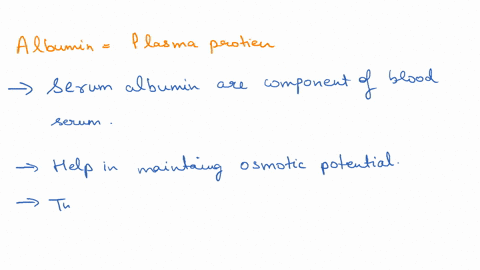 Albumin = Plasma protien
→ Serum albumin are component of blood
serum.
→ Help in maintaing osmotic potential.
→ Th